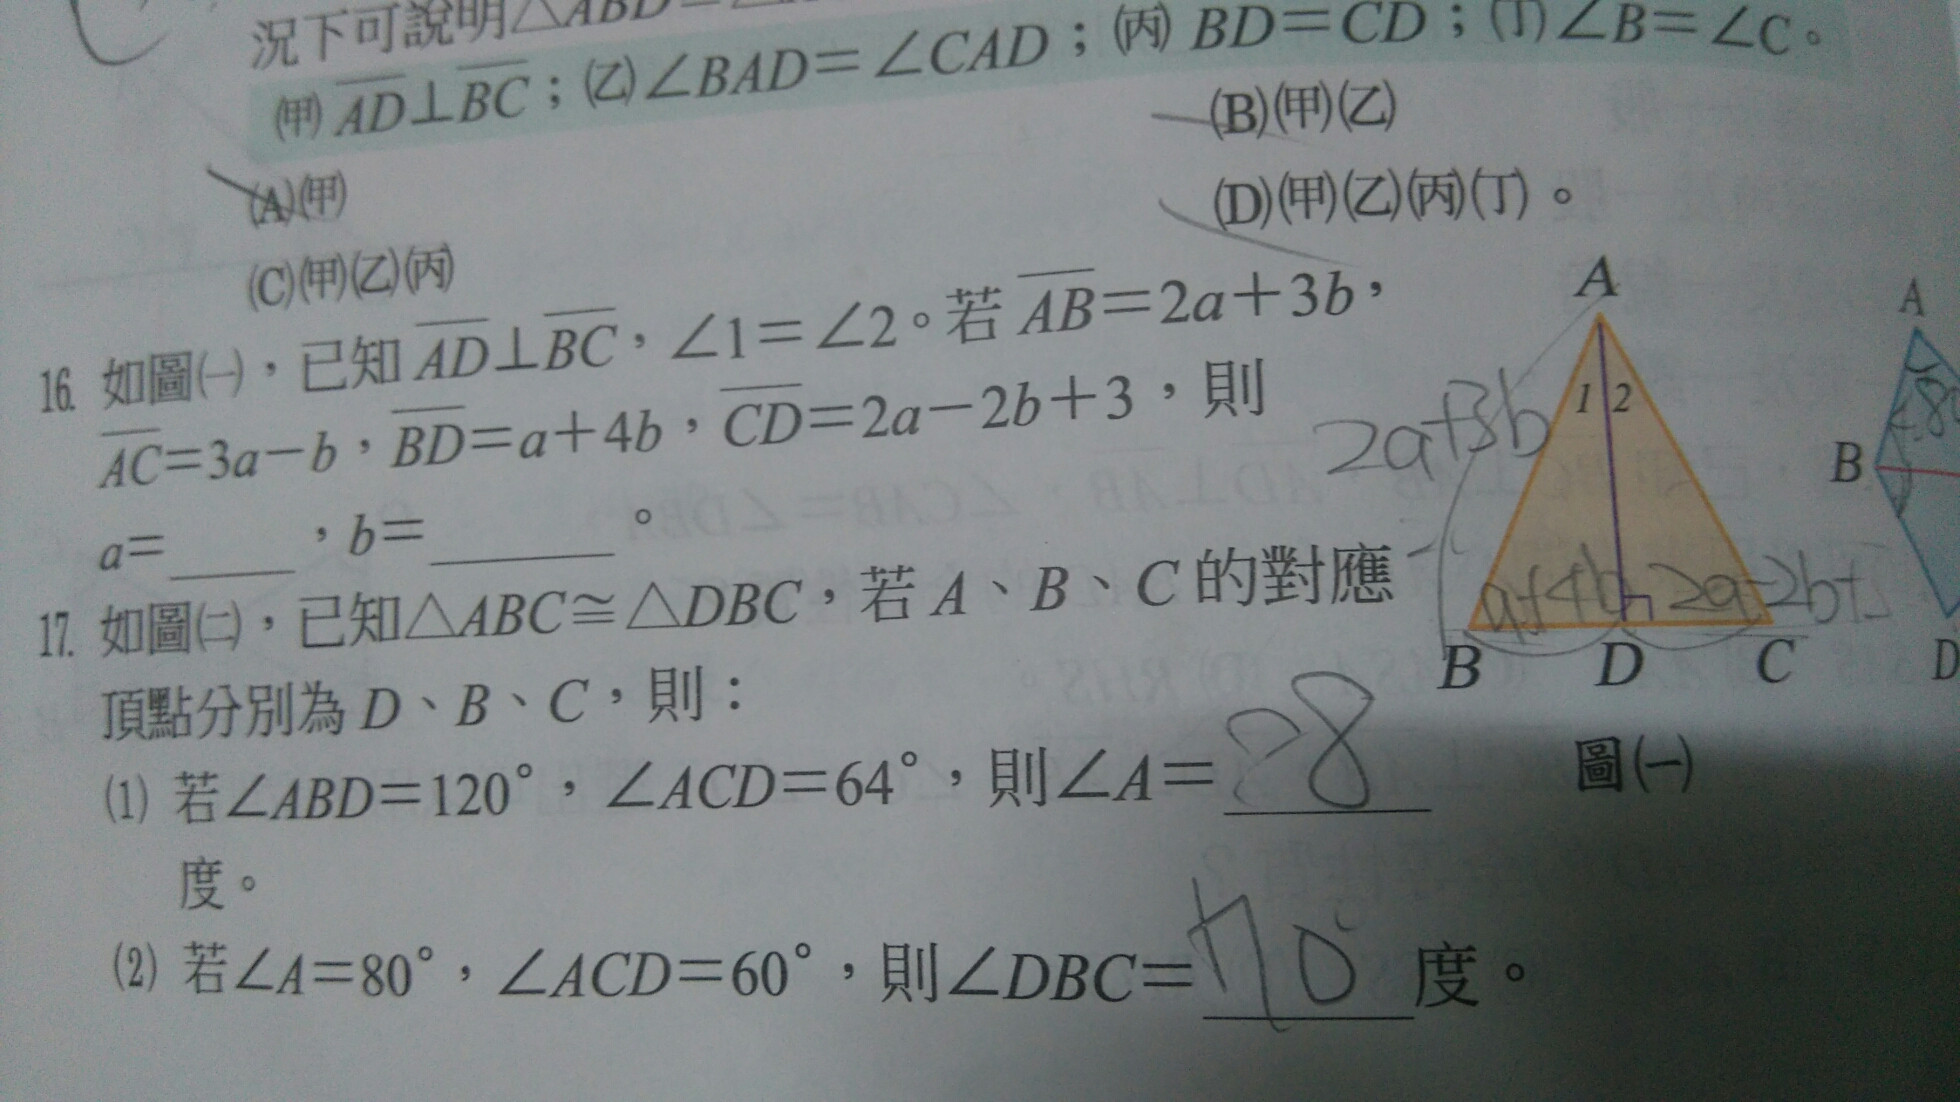 況下可說明△ABD
(甲) AD⊥BC；(乙)∠BAD=∠CAD；(丙) BD=CD；(丁)∠B=∠C。
(A)(甲)
(B)(甲)(乙)
(C)(甲)(乙)(丙)
(D)(甲)(乙)(丙)(丁)。
16. 如圖(一)，已知 AD⊥BC，∠1=∠2。若 AB=2a+3b，
AC=3a-b，BD=a+4b，CD=2a-2b+3，則
a=____，b=______。
17. 如圖(二)，已知△ABC≅△DBC，若 A、B、C 的對應
頂點分別為 D、B、C，則：
(1) 若∠ABD=120°，∠ACD=64°，則∠A=88
度。
(2) 若∠A=80°，∠ACD=60°，則∠DBC=70°度。
A
1 2
2a+3b
a+4b 2a-2b+3
B D C
圖(一)
A
B
D